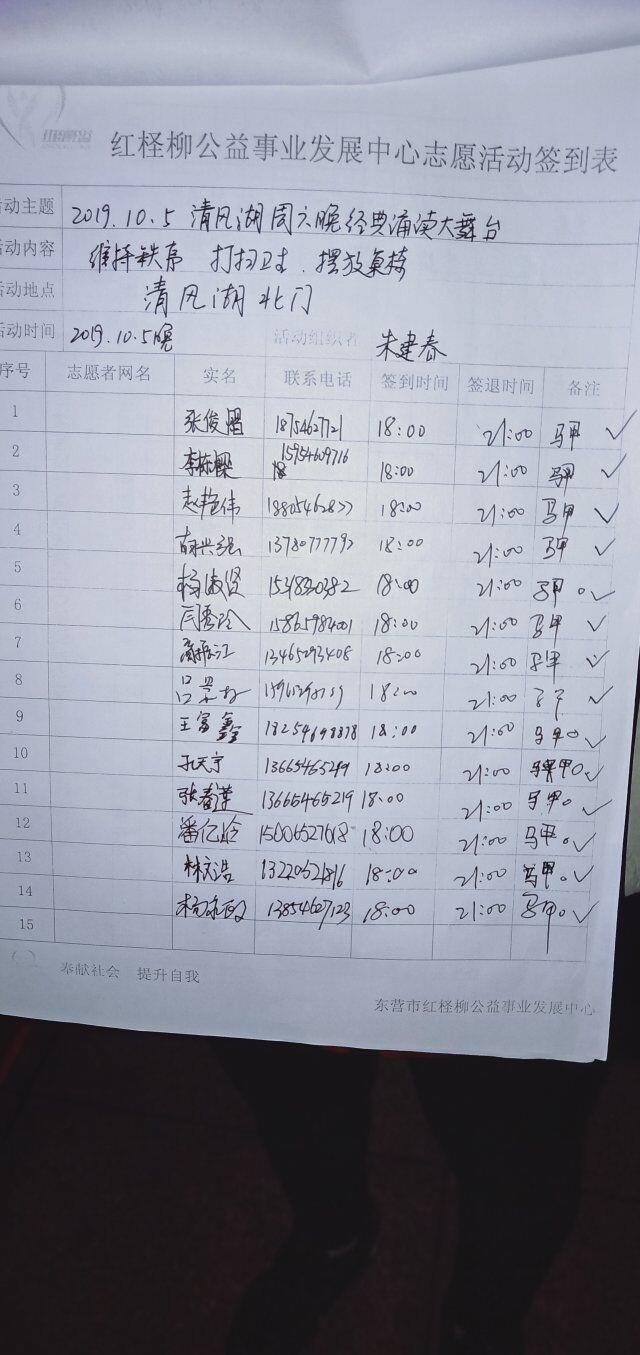 红柽柳公益事业发展中心志愿活动签到表
活动主题 2019.10.5 清风湖周六晚经典诵读大舞台
活动内容 维持秩序 打扫卫生.摆放桌椅
活动地点 清风湖北门
活动时间 2019.10.5晚 活动组织者 朱建春
序号 志愿者网名 实名 联系电话 签到时间 签退时间 备注
1 张俊熠 18754627721 18:00 21:00 马甲 ✓
2 李栋樑 15954609716 18:00 21:00 马甲 ✓
3 赵艳伟 18:00 21:00 马甲 ✓
4 13780777792 18:00 21:00 马甲 ✓
5 杨淑贤 15318320382 18:00 21:00 马甲 ✓
6 闫秀玲 15865984001 18:00 21:00 马甲 ✓
7 13465293408 18:00 21:00 马甲 ✓
8 18:00 21:00 ✓
9 王富鑫 18254698878 18:00 21:00 马甲 ✓
10 孔天宇 13665465249 18:00 21:00 甲 ✓
11 张春莲 13665465219 18:00 21:00 马甲 ✓
12 潘亿玲 15006527618 18:00 21:00 马甲 ✓
13 林文浩 18:00 21:00 马甲 ✓
14 13854627123 18:00 21:00 马甲 ✓
15
奉献社会 提升自我
东营市红柽柳公益事业发展中心